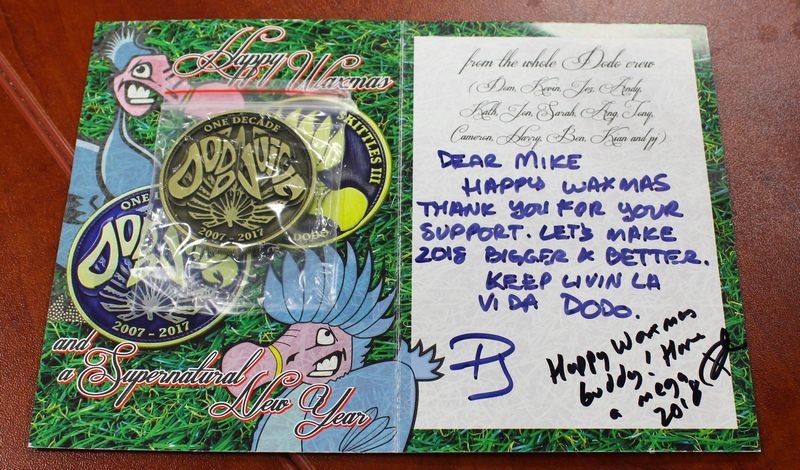 Happy
Waxmas
ONE DECADE
DODO JUICE
2007-2017
SKITTLES III
DODO
ONE
DODO
2007 - 2017
and
a Supernatural
New Year
from the whole Dodo crew
(Dom, Kevin, Jes, Andy,
Kath, Jon, Sarah, Ang, Tony,
Cameron, Harry, Ben, Kian and pj)
DEAR MIKE
HAPPY WAXMAS
THANK YOU FOR YOUR
SUPPORT. LET'S MAKE
2018 BIGGER & BETTER.
KEEP LIVIN LA
VIDA DODO.
PJ
Happy Waxmas
buddy! Have
a mega
2018